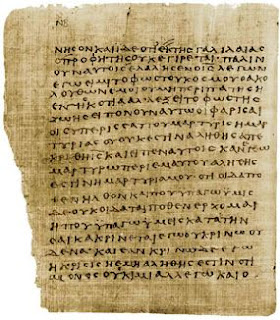 ΝΒ
ΝΗϹΟΝ ΚΑΙ ΙΔΕ ΟΤΙ ΕΚ ΤΗϹ ΓΑΛΙΛΑΙΑϹ
Ο ΠΡΟΦΗΤΗϹ ΟΥΚ ΕΓΙΡΕΤΑΙ· ΠΑΛΙΝ
ΟΥΝ ΑΥΤΟΙϹ ΕΛΑΛΗϹΕΝ Ο ΙϹ ΛΕΓΩΝ
ΕΓΩ ΕΙΜΙ ΤΟ ΦΩϹ ΤΟΥ ΚΟϹΜΟΥ Ο ΑΚΟ
ΛΟΥΘΩΝ ΕΜΟΙ ΟΥ ΜΗ ΠΕΡΙΠΑΤΗϹΗ
ΕΝ ΤΗ ϹΚΟΤΙΑ ΑΛΛ ΕΞΕΙ ΤΟ ΦΩϹ ΤΗϹ
ΖΩΗϹ ΕΙΠΟΝ ΟΥΝ ΑΥΤΩ ΟΙ ΦΑΡΙϹΑΙ
ΟΙ ϹΥ ΠΕΡΙ ϹΕΑΥΤΟΥ ΜΑΡΤΥΡΙϹ Η ΜΑΡ
ΤΥΡΙΑ ϹΟΥ ΟΥΚ ΕϹΤΙΝ ΑΛΗΘΗϹ ΑΠΕ
ΚΡΙΘΗ ΙϹ ΚΑΙ ΕΙΠΕΝ ΑΥΤΟΙϹ ΚΑΝ ΕΓΩ
ΜΑΡΤΥΡΩ ΠΕΡΙ ΕΜΑΥΤΟΥ ΑΛΗΘΗϹ
ΕϹΤΙΝ Η ΜΑΡΤΥΡΙΑ ΜΟΥ ΟΤΙ ΟΙΔΑ ΠΟ
ΘΕΝ ΗΛΘΟΝ ΚΑΙ ΠΟΥ ΥΠΑΓΩ ΥΜΕΙϹ
ΔΕ ΟΥΚ ΟΙΔΑΤΕ ΠΟΘΕΝ ΕΡΧΟΜΑΙ
Η ΠΟΥ ΥΠΑΓΩ ΥΜΕΙϹ ΚΑΤΑ ΤΗΝ
ϹΑΡΚΑ ΚΡΙΝΕΤΑΙ ΕΓΩ ΟΥ ΚΡΙΝΩ ΟΥ
ΔΕΝΑ ΚΑΙ ΕΑΝ ΚΡΙΝΩ ΔΕ ΕΓΩ
Η ΚΡΙϹΙϹ Η ΕΜΗ ΑΛΗΘΗϹ ΕϹΤΙΝ ΟΤΙ
ΜΟΝΟϹ ΟΥΚ ΕΙΜΙ ΑΛΛ ΕΓΩ ΚΑΙ Ο